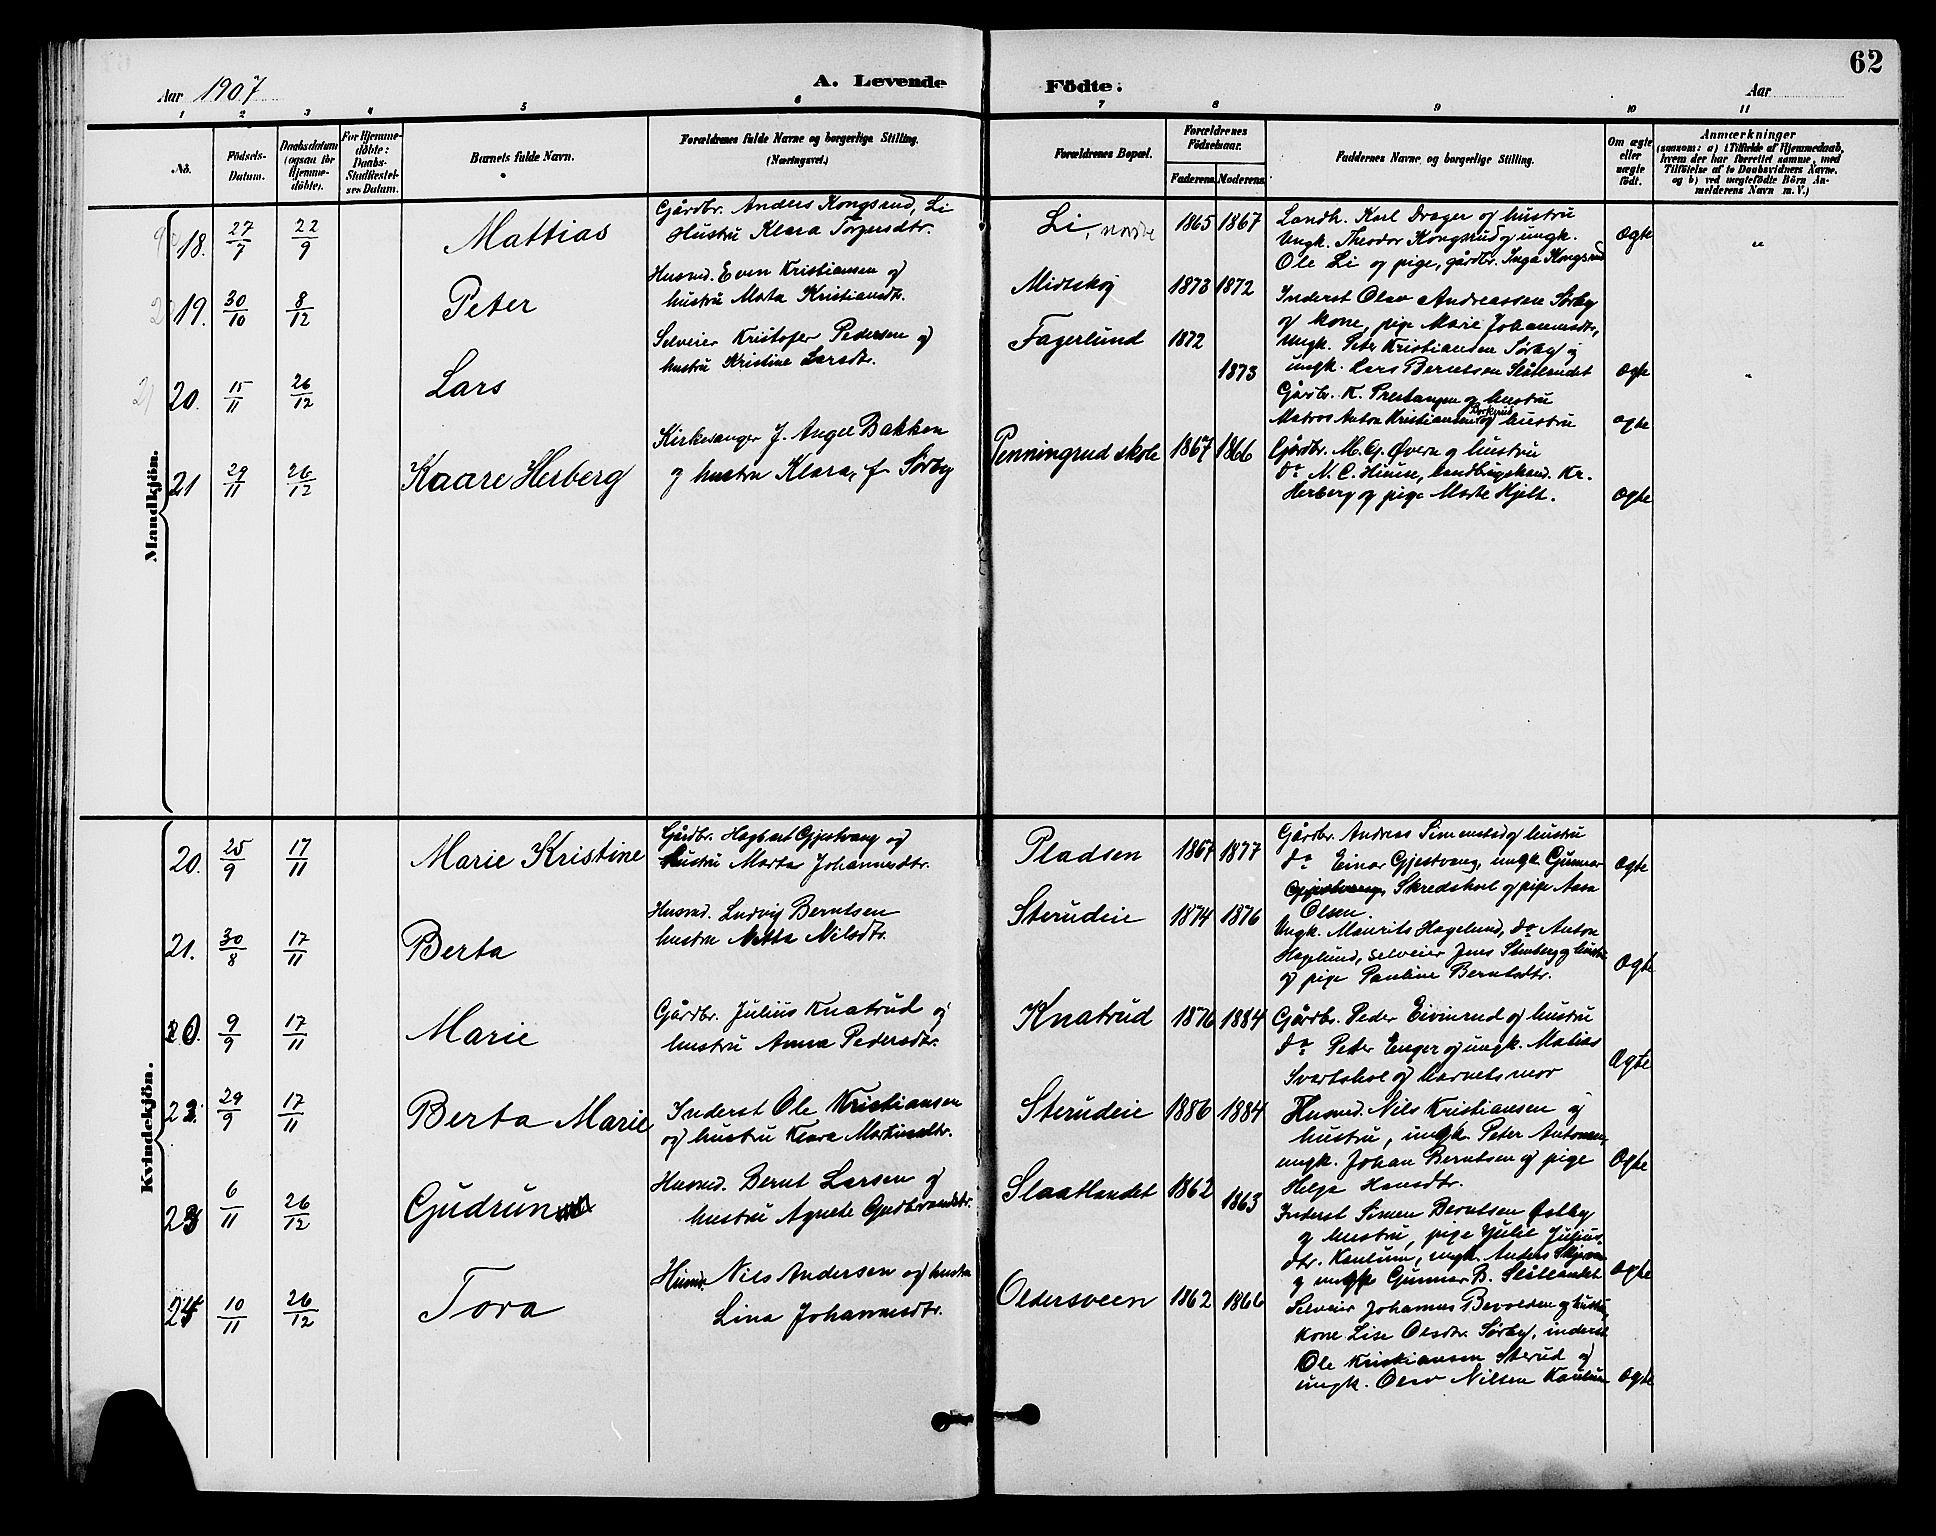 62
Aar 1907
A. Levende Födte.
Aar
1 2 3 4 5 6 7 8 9 10 11
No.
Födsels-Datum.
Daabsdatum (ogsaa for Hjemmedöbte).
For Hjemmedöbte: Daabs-Stadfæstelses Datum.
Barnets fulde Navn.
Forældrenes fulde Navne og borgerlige Stilling. (Næringsvei.)
Forældrenes Bopæl.
Forældrenes Födselsaar.
Faderens. Moderens.
Faddernes Navne og borgerlige Stilling.
Om ægte eller uægte födt.
Anmærkninger
(saasom: a) i Tilfælde af Hjemmedaab, hvem der har forrettet samme, med Tilföielse af to Daabsvidners Navne, og b) ved uægtefödte Börn Anmelderens Navn m. V.)
Mandkjön.
18. 27/7 22/9 Mattias
Gårdbr. Anders Kongsrud, Li
Hustru Klara Torgersdtr.
Li, nordre 1865 1867
Landh. Karl Drager og hustru
Ungk. Theodor Kongsrud og ungk.
Ole Li og pige, gårdbr. Inga Kongsrud
Ægte "
19. 30/10 8/12 Peter
Husmd. Even Kristiansen og
hustru Marta Kristiansdtr.
Midtskog 1873 1872
Inderst Olav Andreassen Sørby
og kone, pige Marie Johannesdtr,
ungk. Peter Kristiansen Sørby og
ungk. Lars Berntsen Slåtlandet
Ægte "
20. 15/11 26/12 Lars
Selveier Kristofer Pedersen og
hustru Kristine Larsdtr.
Fagerlund 1872 1873
Gårbr. K. Prestangen og hustru
Matros Anton Kristiansen og hustru
ægte
21 29/11 26/12 Kaare Herberg
Kirkesanger J. Angel Bakken
og hustru Klara, f. Sørby
Penningrud skole 1867 1866
Gårdbr. M. G. Øvern og hustru
do M. C. Huuse, landbrugskand. Kr.
Herberg og pige Marte Hjelt.
Ægte
Kvindekjön.
20. 25/9 17/11 Marie Kristine
Gårdbr. Hagbart Gjestvang og
hustru Marta Johannesdtr.
Pladsen 1867 1877
Gårdbr. Andreas Simenstad og hustru
do Einar Gjestvang, ungk. Gunnar
Gjestvang, Skredshol og pige Aasa
Olsen.
Ægte
21. 30/8 17/11 Berta
Husmd. Ludvig Berntsen
hustru Netta Nilsdtr.
Sterudeie 1874 1876
Ungk. Maurits Hagelund, do Anton
Hagelund, selveier Jens Stenberg og hustru
og pige Pauline Berntsdtr.
Ægte
9/9 17/11 Marie
Gårdbr. Julius Knatrud og
hustru Anna Pedersdtr.
Knatrud 1876 1884
Gårdbr. Peder Eivinrud og hustru
do Peter Enger og ungk. Matias
Svartshol og barnets mor
Ægte
29/9 17/11 Berta Marie
Inderst Ole Kristiansen
og hustru Klara Martinsdtr.
Sterudeie 1886 1884
Husmd. Nils Kristiansen og
hustru, ungk. Peter Antonsen,
ungk. Johan Berntsen og pige
Helga Hansdtr.
Ægte
23 6/11 26/12 Gudrun
Husmd. Bernt Larsen og
hustru Agnete Gudbrandsdtr.
Slaatlandet 1862 1863
Inderst Simen Berntsen Østby
og hustru, pige Julie Julius-
dtr. Kaulum, ungk. Anders
og ungk. Gunnar B. Slåtlandet
Ægte
24 10/11 26/12 Tora
Husmd. Nils Andersen og hustru
Lina Johannesdtr.
Oldersveen 1862 1866
Selveier Johannes Bevolden og hustru,
kone Lise Olsdtr. Sørby, inderst
Ole Kristiansen Sterud og
ungk. Olav Nilsen Kaulum
Ægte